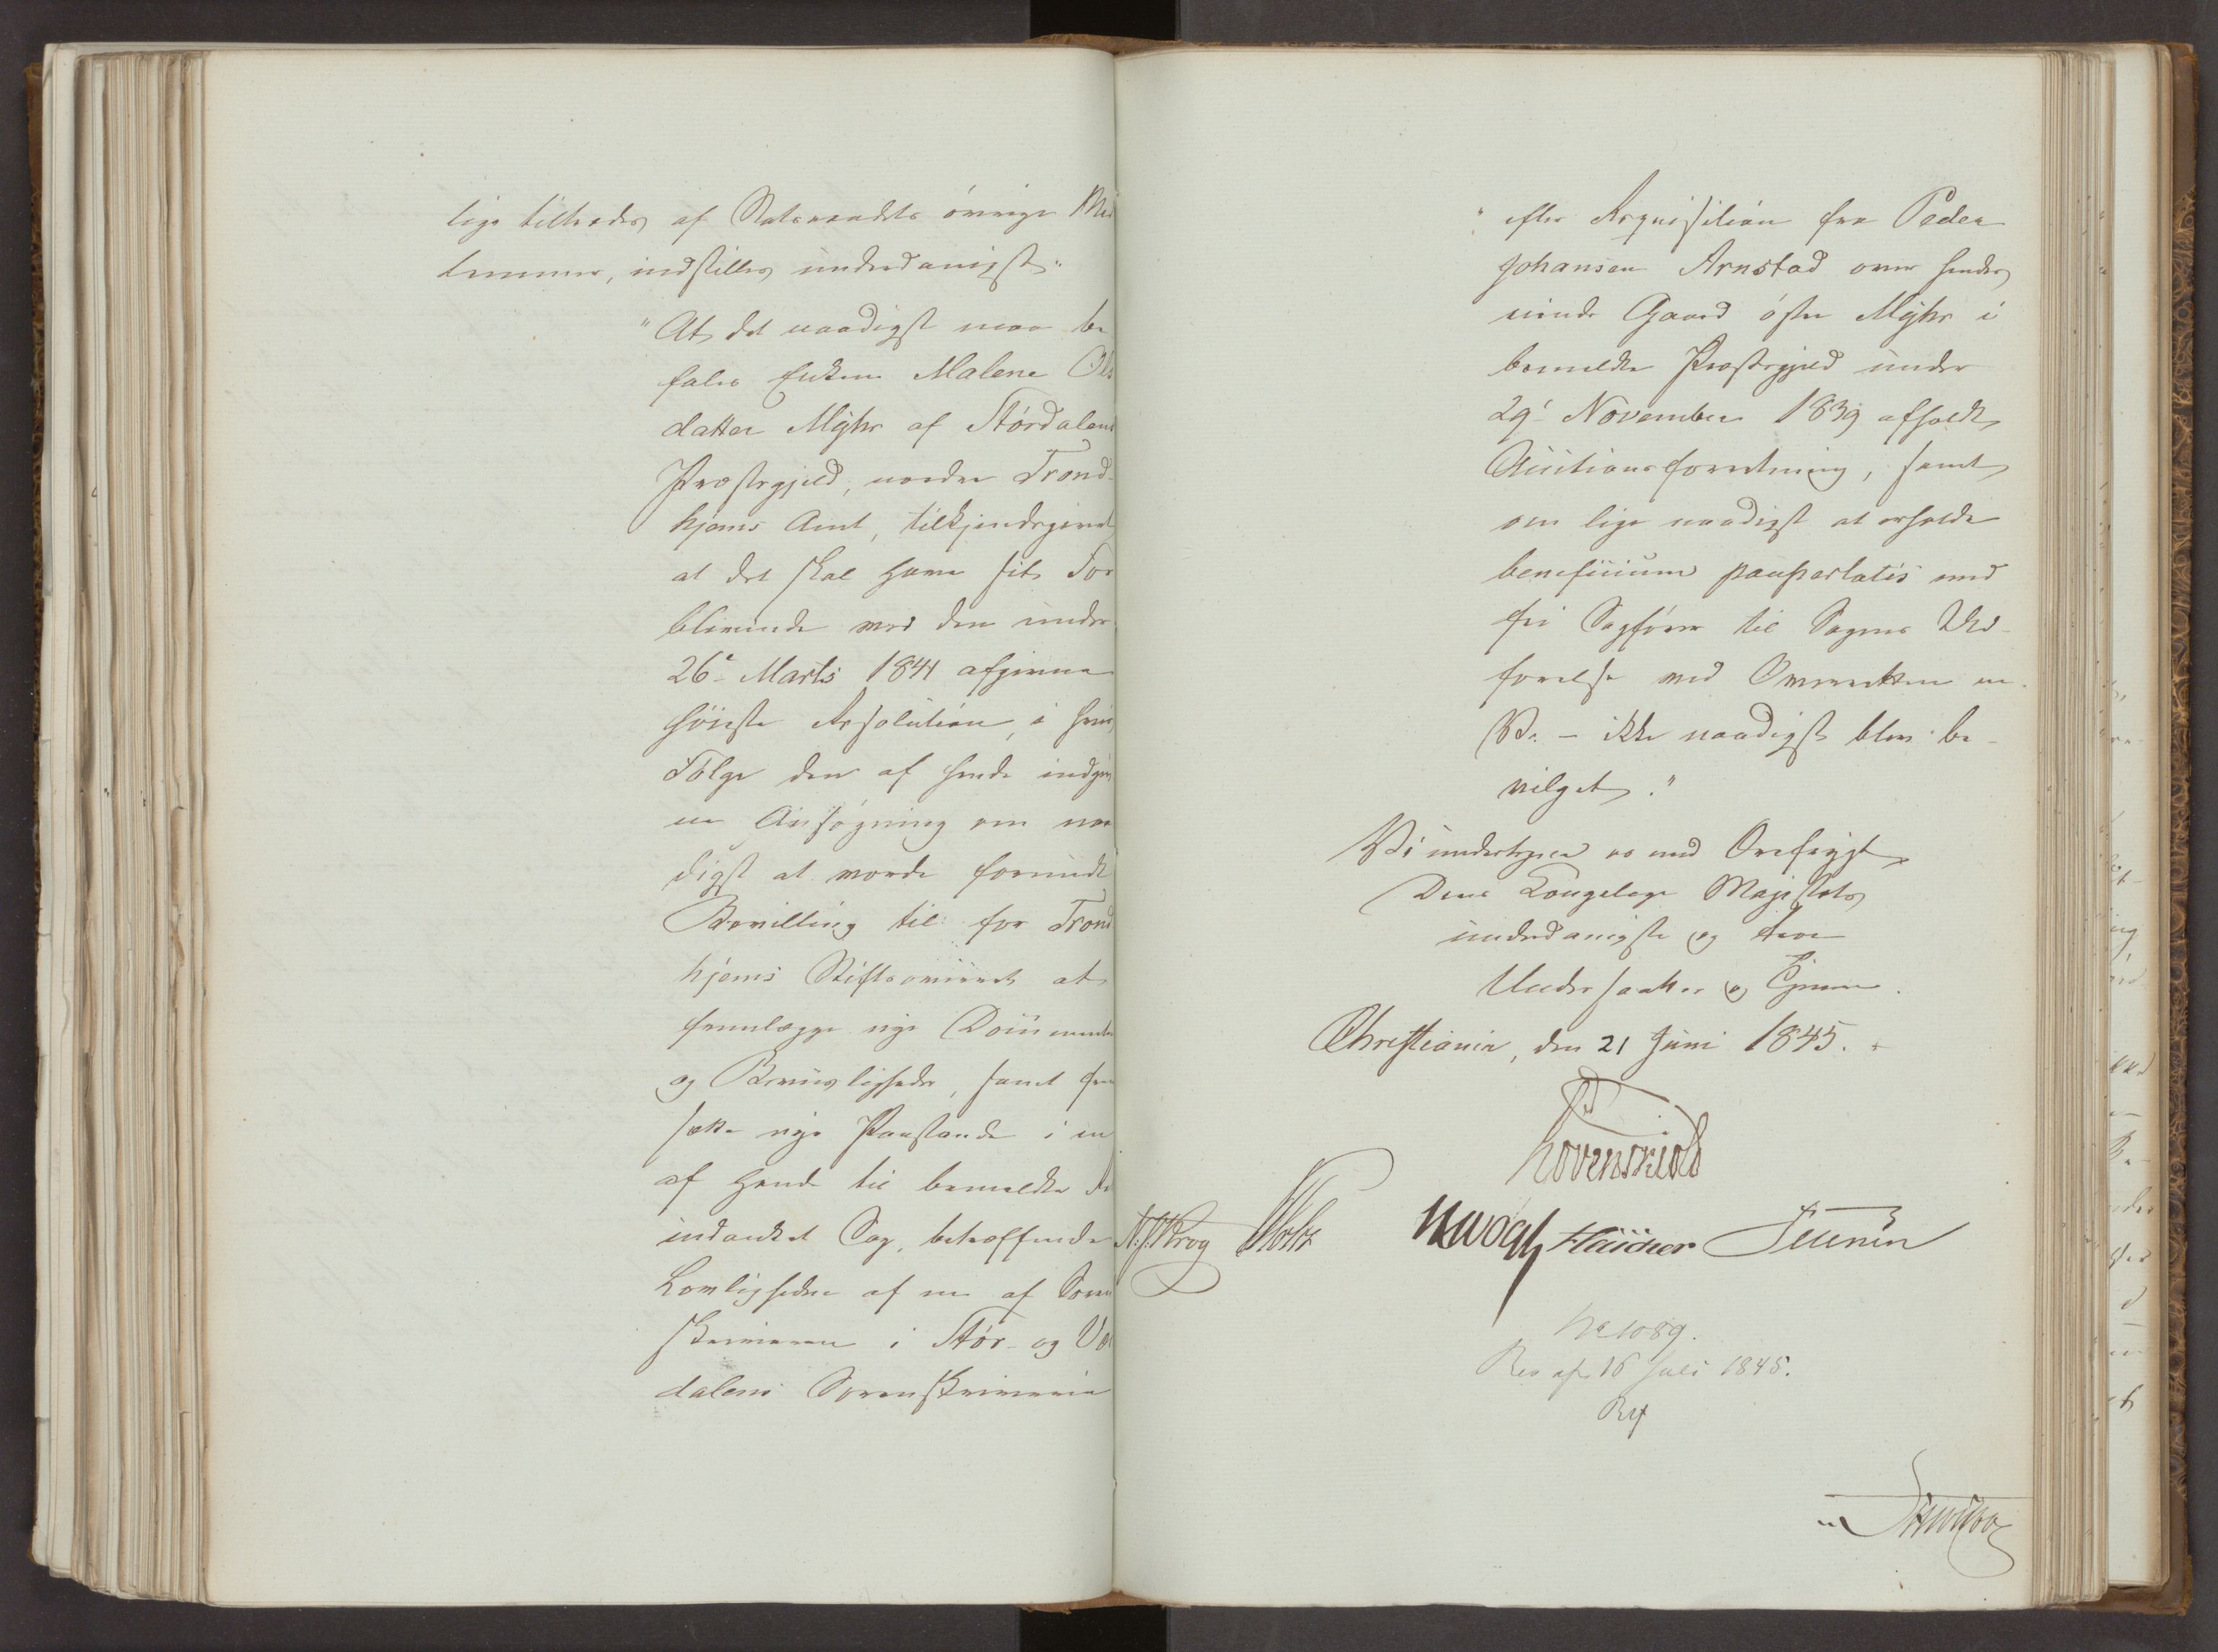 lige tiltrædes af Statsraadets övrige Med
lemmer, indstilles underdanigst:
"At det naadigst maa be
fales Enken Malene Ols
datter Myhr af Stördalens
Præstegjeld, nordre Trond-
hjems Amt, tilkjendegivet
at det skal have sit For
blivende med den under
26de Marts 1841 afgivne
höieste Resolution, i hvis
Fölge den af hende indgiv
ne Ansögning om naa
digst at vorde forundt
Bevilling til for Trond
hjems Stiftsoverret at
fremlægge nye Documenter
og Beviisligheder, samt frem
sætte nye Paastande i en
af hende til bemeldte Ret
indanket Sag, betræffende
Lovligheden af en af Soren
skriveren i Stör- og Vær
dalens Sorenskriverie
" efter Reqvisition fra Peder
Johansen Arnstad over hendes
eiende Gaard östre Myhr i
bemeldte Præstegjeld under
29de November 1839 afholdt
Auctionsforretning, samt
om lige naadigst at erholde
beneficium paupertatis med
fri Sagförer til Sagens Ud-
förelse ved Overretten m.
V. - ikke naadigst blev be-
vilget."
Vi undertegne os med Ærefrygt
Deres Kongelige Majestæts
underdanigste og troe
Undersaatter og Tjenere.
Christiania, den 21 Juni 1845.
Lövenskiold
N. J. Krog Vogt
No 1089.
Res af 16 Juli 1845.